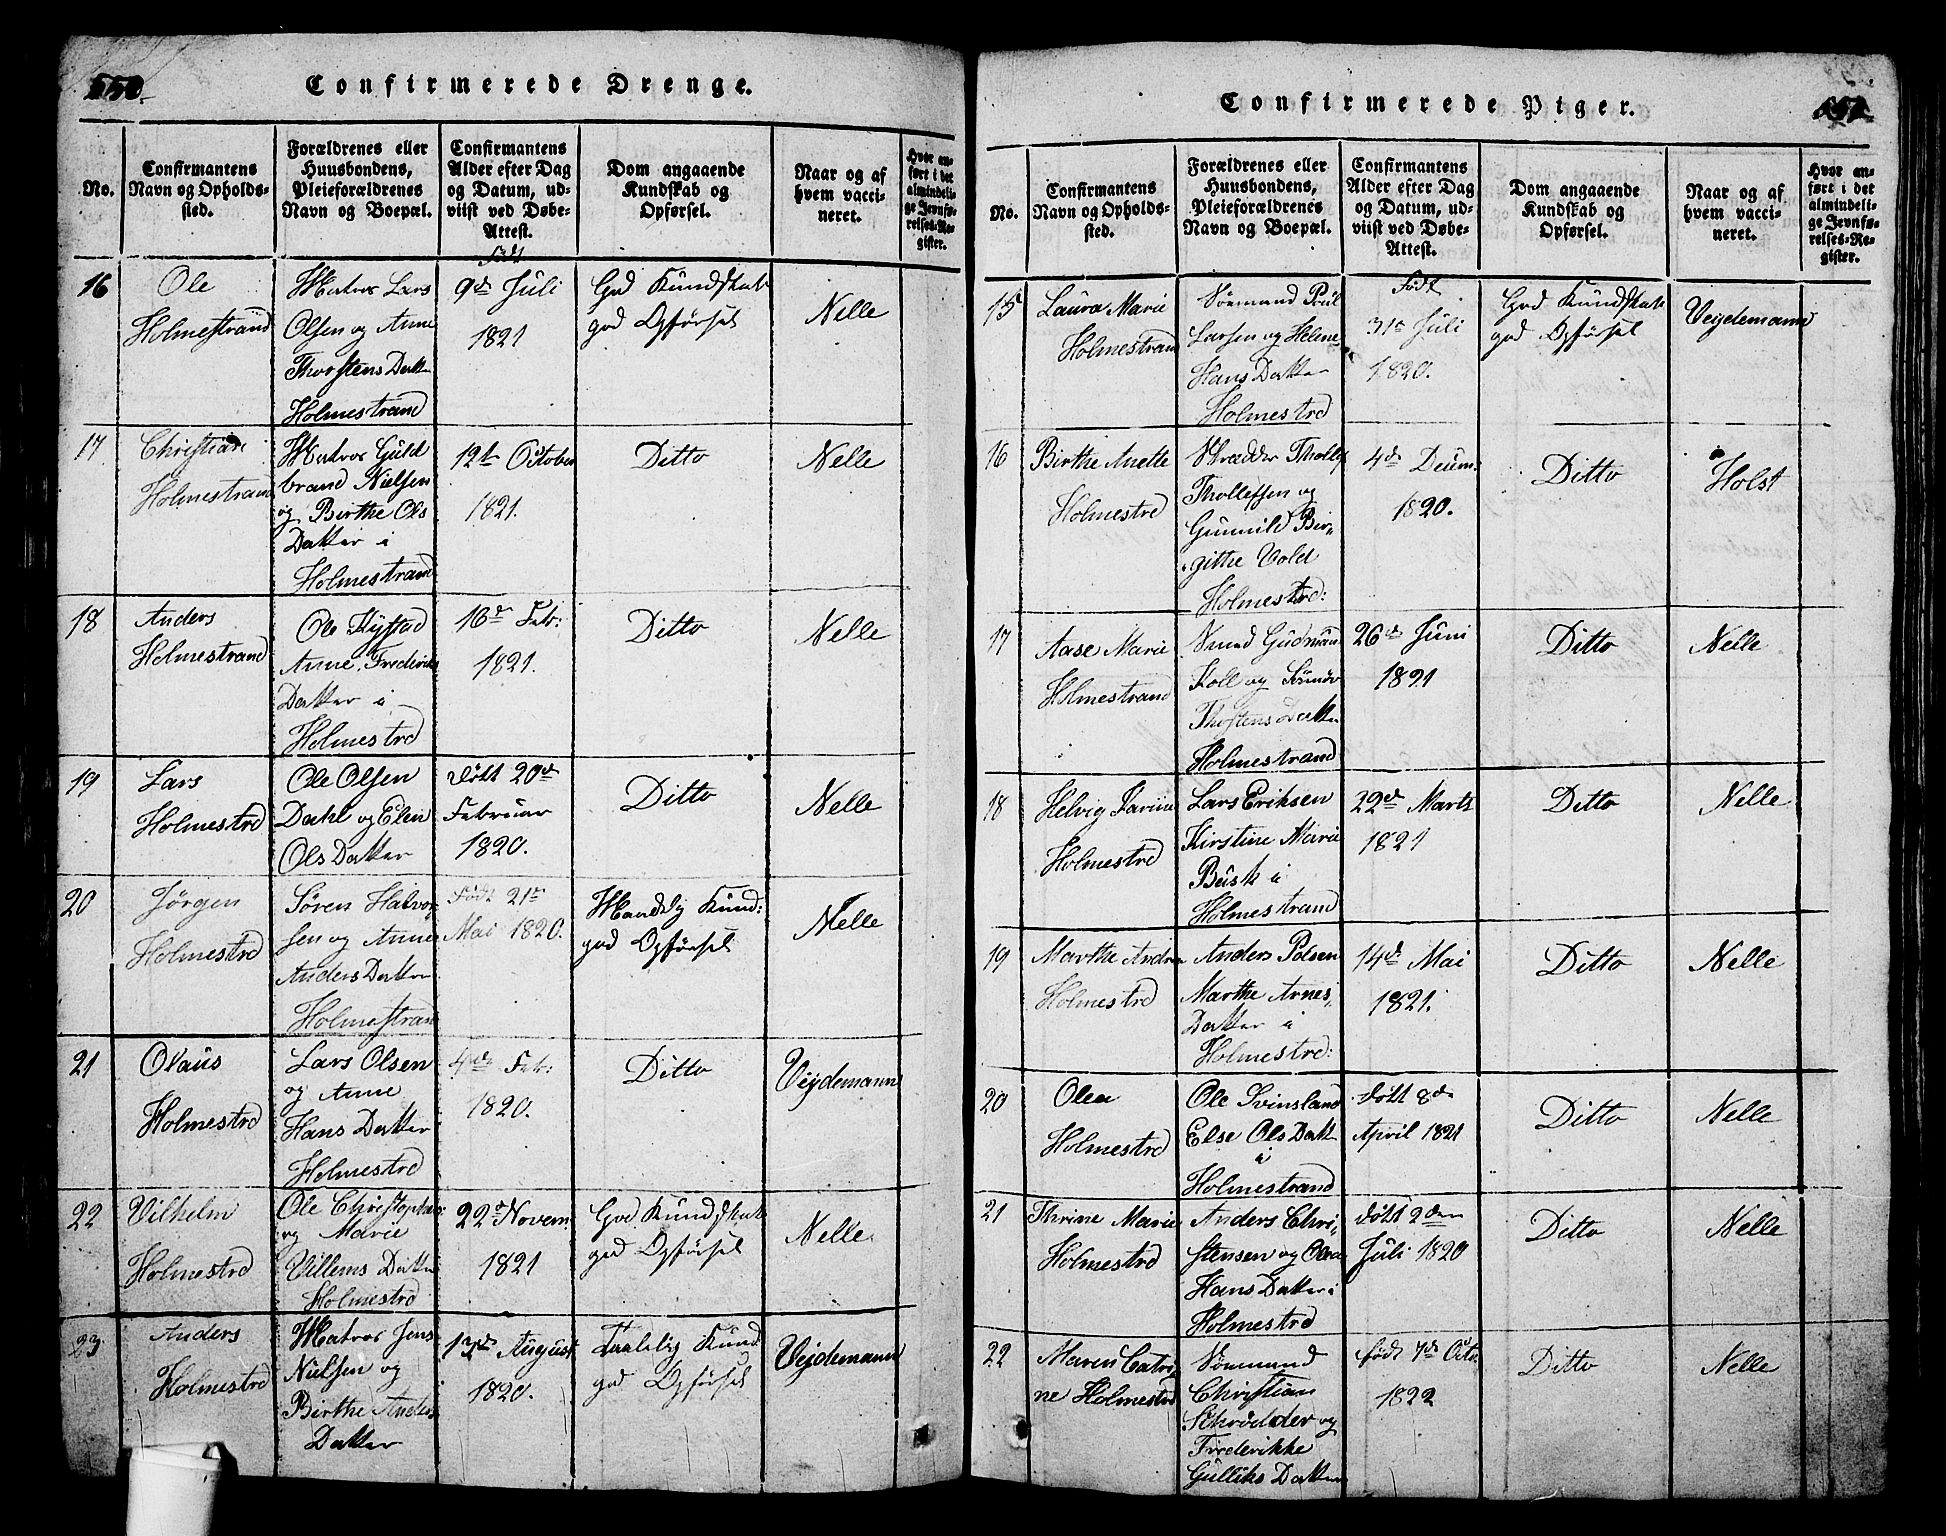 550.
Confirmerede Drenge.
No.
Confirmantens
Navn og Opholds-
sted.
Forældrenes eller
Huusbondens,
Pleieforældrenes
Navn og Boepæl.
Confirmantens
Alder efter Dag
og Datum, ud-
viist ved Døbe-
Attest.
Dom angaaende
Kundskab og
Opførsel.
Naar og af
hvem vacci-
neret.
Hvor an-
ført i det
almindeli-
ge Jevnfø-
relses-Re-
gister.
16
Ole
Holmestrand
Matros Lars
Olsen og Anne
Thorstens Datter
Holmestrand
Født
9de Juli
1821
God Kundskab
god Opførsel
Nelle
17
Christian
Holmestrand
Matros Guld
brand Nielsen
og Birthe Ols
Datter i
Holmestrand
12te October
1821.
Ditto
Nelle
18
Anders
Holmestrand
Ole
Anne Frederiks
Datter i
Holmestrd
16de Febr:
1821.
Ditto
Nelle
19
Lars
Holmestrd
Ole Olsen
Dahl og Elen
Ols Datter
Født 20de
Februar
1820.
Ditto
Nelle
20
Jørgen
Holmestrd
Søren Halvor
sen og Anne
Anders Datter
Holmestrand
Født 21de
Mai 1820.
Maadelig Kund:
god Opførsel
Nelle
21
Olaus
Holmestrd
Lars Olsen
og Anne
Hans Datter
Holmestrd
4de Febr:
1820.
Ditto
Veydemann
22
Vilhelm
Holmestrd
Ole Christophers:
og Marie
Villems Datter
Holmestrd
22de Novem
1821
God Kundskab
god Opførsel
Nelle.
23
Anders
Holmestrd
Matros Jens
Nielsen og
Birthe Anders
Datter
13de August
1820.
Taalelig Kund
god Opførsel
Veydemann
551.
Confirmerede Piger.
No.
Confirmantens
Navn og Opholds-
sted.
Forældrenes eller
Huusbondens,
Pleieforældrenes
Navn og Boepæl.
Confirmantens
Alder efter Dag
og Datum, ud-
viist ved Døbe-
Attest.
Dom angaaende
Kundskab og
Opførsel.
Naar og af
hvem vacci-
neret.
Hvor an-
ført i det
almindeli-
ge Jevnfø-
relses-Re-
gister.
15
Laura Marie
Holmestrand
Sømand Poul
Larsen og Helene
Hans Datter
Holmestrd
Født
31te Juli
1820.
God Kundskab
god Opførsel
Veydemann
16
Birthe Anette
Holmestrd
Skrædder Tholle
Thollefsen og
Gunnild Bir-
gitthe Vold
Holmestrd:
4de Decem:
1820.
Ditto
Holst
17
Aase Marie
Holmestrand
Smed Gudmund
Koll og
Thostens Datter
Holmestrand
26de Juni
1821
Ditto
Nelle
18
Helvig Karine
Holmestrd
Lars Eriksen
Kirstine Marie
Busk i
Holmestrand
22de Marts
1821
Ditto
Nelle
19
Marthe Andrea
Holmestrd
Anders Polsen
Marthe Arnes
Datter i
Holmestrd:
14de Mai
1821.
Ditto
Nelle
20
Olea
Holmestrd
Ole Svinsland
Else Ols Datt
i
Holmestrand
Født 8de
April 1821
Ditto
Nelle
21
Thrine Marie
Holmestrd
Anders Chri-
stensen og Olea
Hans Datter i
Holmestrd
Født 2den
Juli 1820
Ditto
Nelle
22
Maren Catri
ne Holmestrd
Sømand
Christian
Schrødder og
Frederikke
Gulliks Datter
født 7de Octo.
1822
Ditto
Nelle